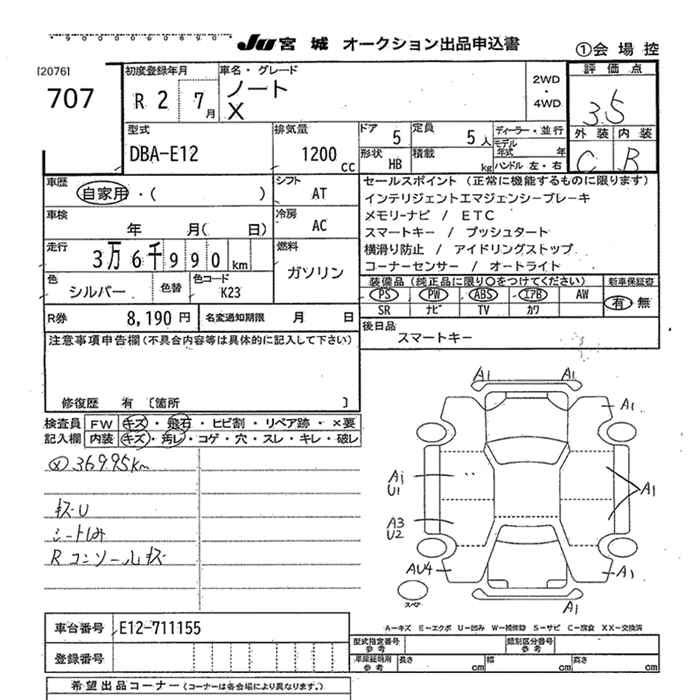 JU 宮城 オークション出品申込書
①会場控
[2076]
707
初度登録年月 R 2 7月
車名・グレード ノート
X
2WD・4WD
評価点 3.5
型式 DBA-E12
排気量 1200 cc
ドア 5 定員 5人
ディーラー・並行
モデル年式 年
形状 HB 積載 kg ハンドル 左・右
外装 内装
C B
車歴 自家用・( )
シフト AT
車検 年 月( 日)
冷房 AC
走行 3万6千990km
燃料 ガソリン
色 シルバー 色替 色コード K23
R券 8,190円 名変通知期限 月 日
セールスポイント (正常に機能するものに限ります)
インテリジェントエマジェンシーブレーキ
メモリーナビ / ETC
スマートキー / プッシュタート
横滑り防止 / アイドリングストップ
コーナーセンサー / オートライト
装備品 (純正品に限り○をつけてください) 新車保証書
PS PW ABS エアB AW 有 無
SR ナビ TV カワ
後日品
スマートキー
注意事項申告欄(不具合内容等は具体的に記入して下さい)
修復歴 有 〔箇所 〕
検査員 FW キズ・飛石・ヒビ割・リペア跡・×要
記入欄 内装 キズ・汚レ・コゲ・穴・スレ・キレ・破レ
36995km
キズU
シートしみ
Rコンソールキズ
A1 A1
A1
A1
U1
A1
A3
U2
AU4
A1
A1
スペア
A-キズ E-エクボ U-凹み W-補修跡 S-サビ C-腐食 XX-交換済
車台番号 E12-711155
登録番号
型式指定番号 参考 類別区分番号 参考
車庫証明用 参考 長さ cm 幅 cm 高さ cm
希望出品コーナー (コーナーは各会場により異なります。)